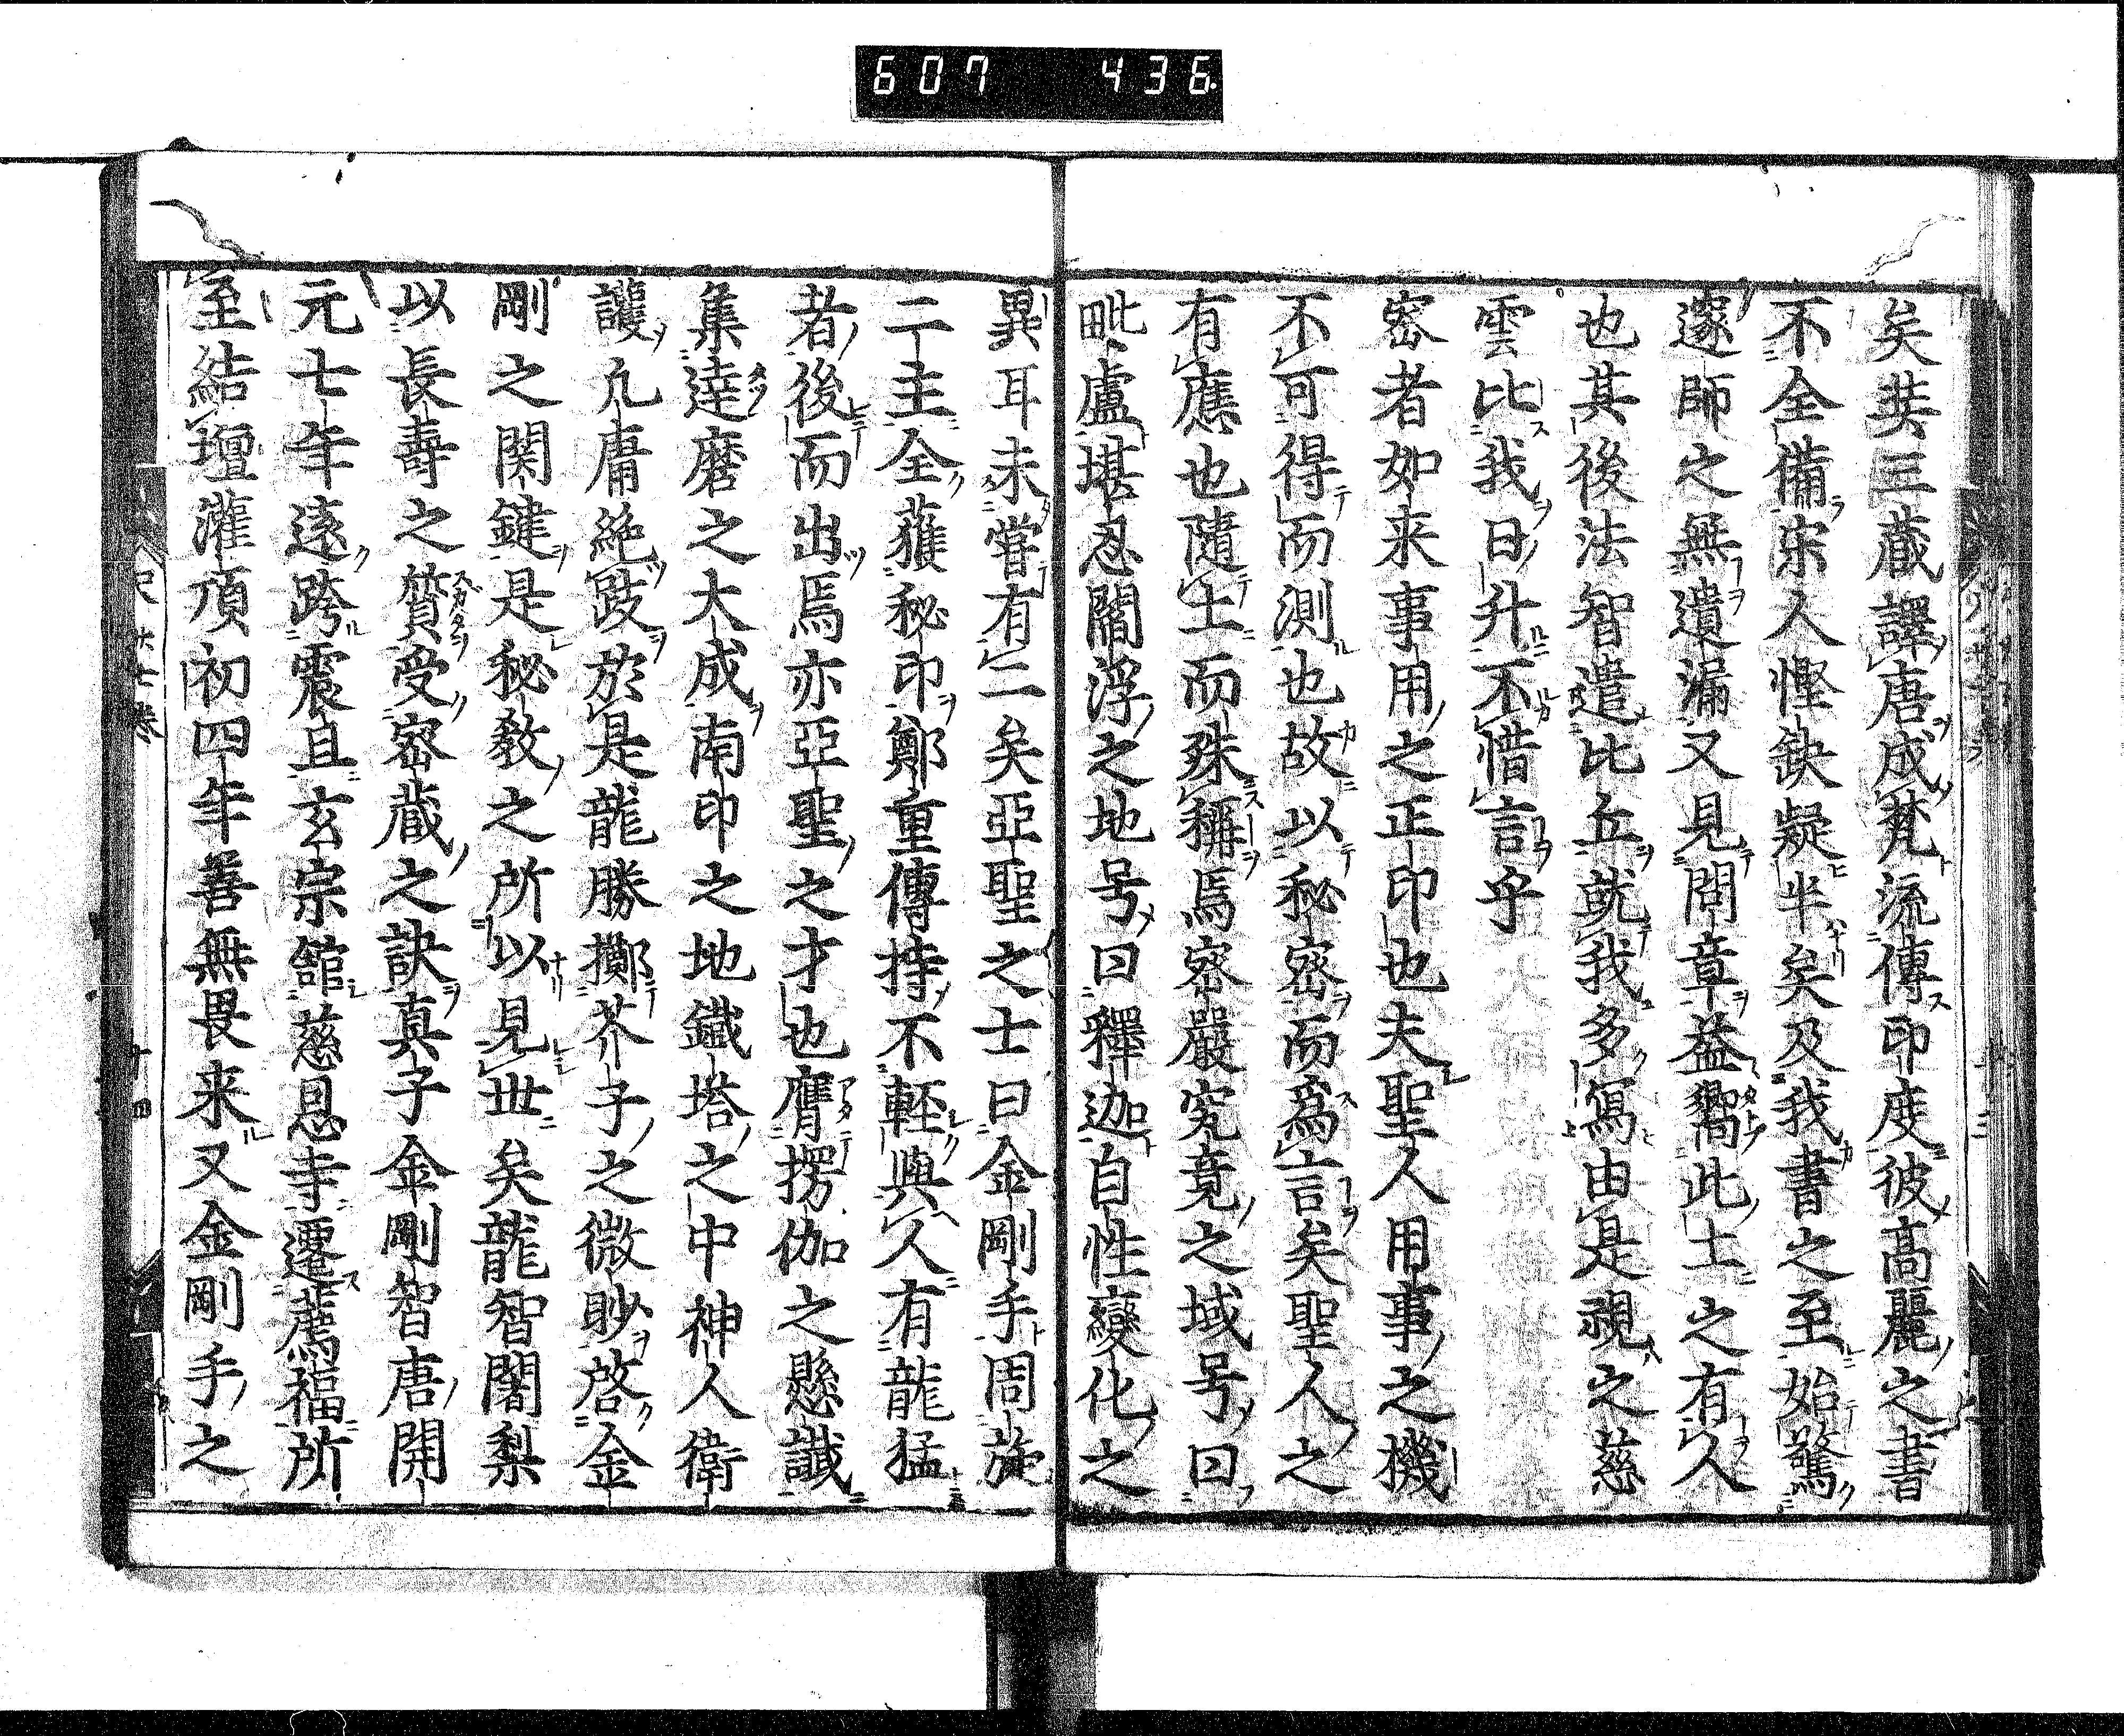 607 436
矣奘三藏譯唐成梵流傳印度彼高麗之書
不全備宋人慳缺疑半矣及我書之至始驚
邃師之無遺漏又見問章益嚮此土之有人
也其後法智遣比丘就我多寫由是視之慈
雲比我日升不惜言乎
密者如来事用之正印也夫聖人用事之機
不可得而測也故以秘密而爲言矣聖人之
有應也隨土而殊稱焉密嚴究竟之域号曰
毗盧堪忍閻浮之地号曰釋迦自性變化之
異耳未嘗有二矣亞聖之士曰金剛手周旋
二主全獲秘印鄭重傳持不輕與人有龍猛
者後而出焉亦亞聖之才也膺楞伽之懸讖
集達磨之大成南印之地鐵塔之中神人衛
護凡庸絶跂於是龍勝擲芥子之微眇啓金
剛之関鍵是秘教之所以見世矣龍智闍梨
以長壽之質受密藏之訣真子金剛智唐開
元七年逺跨震且玄宗舘慈恩寺遷薦福所
至結壇灌頂初四年善無畏来又金剛手之
十四